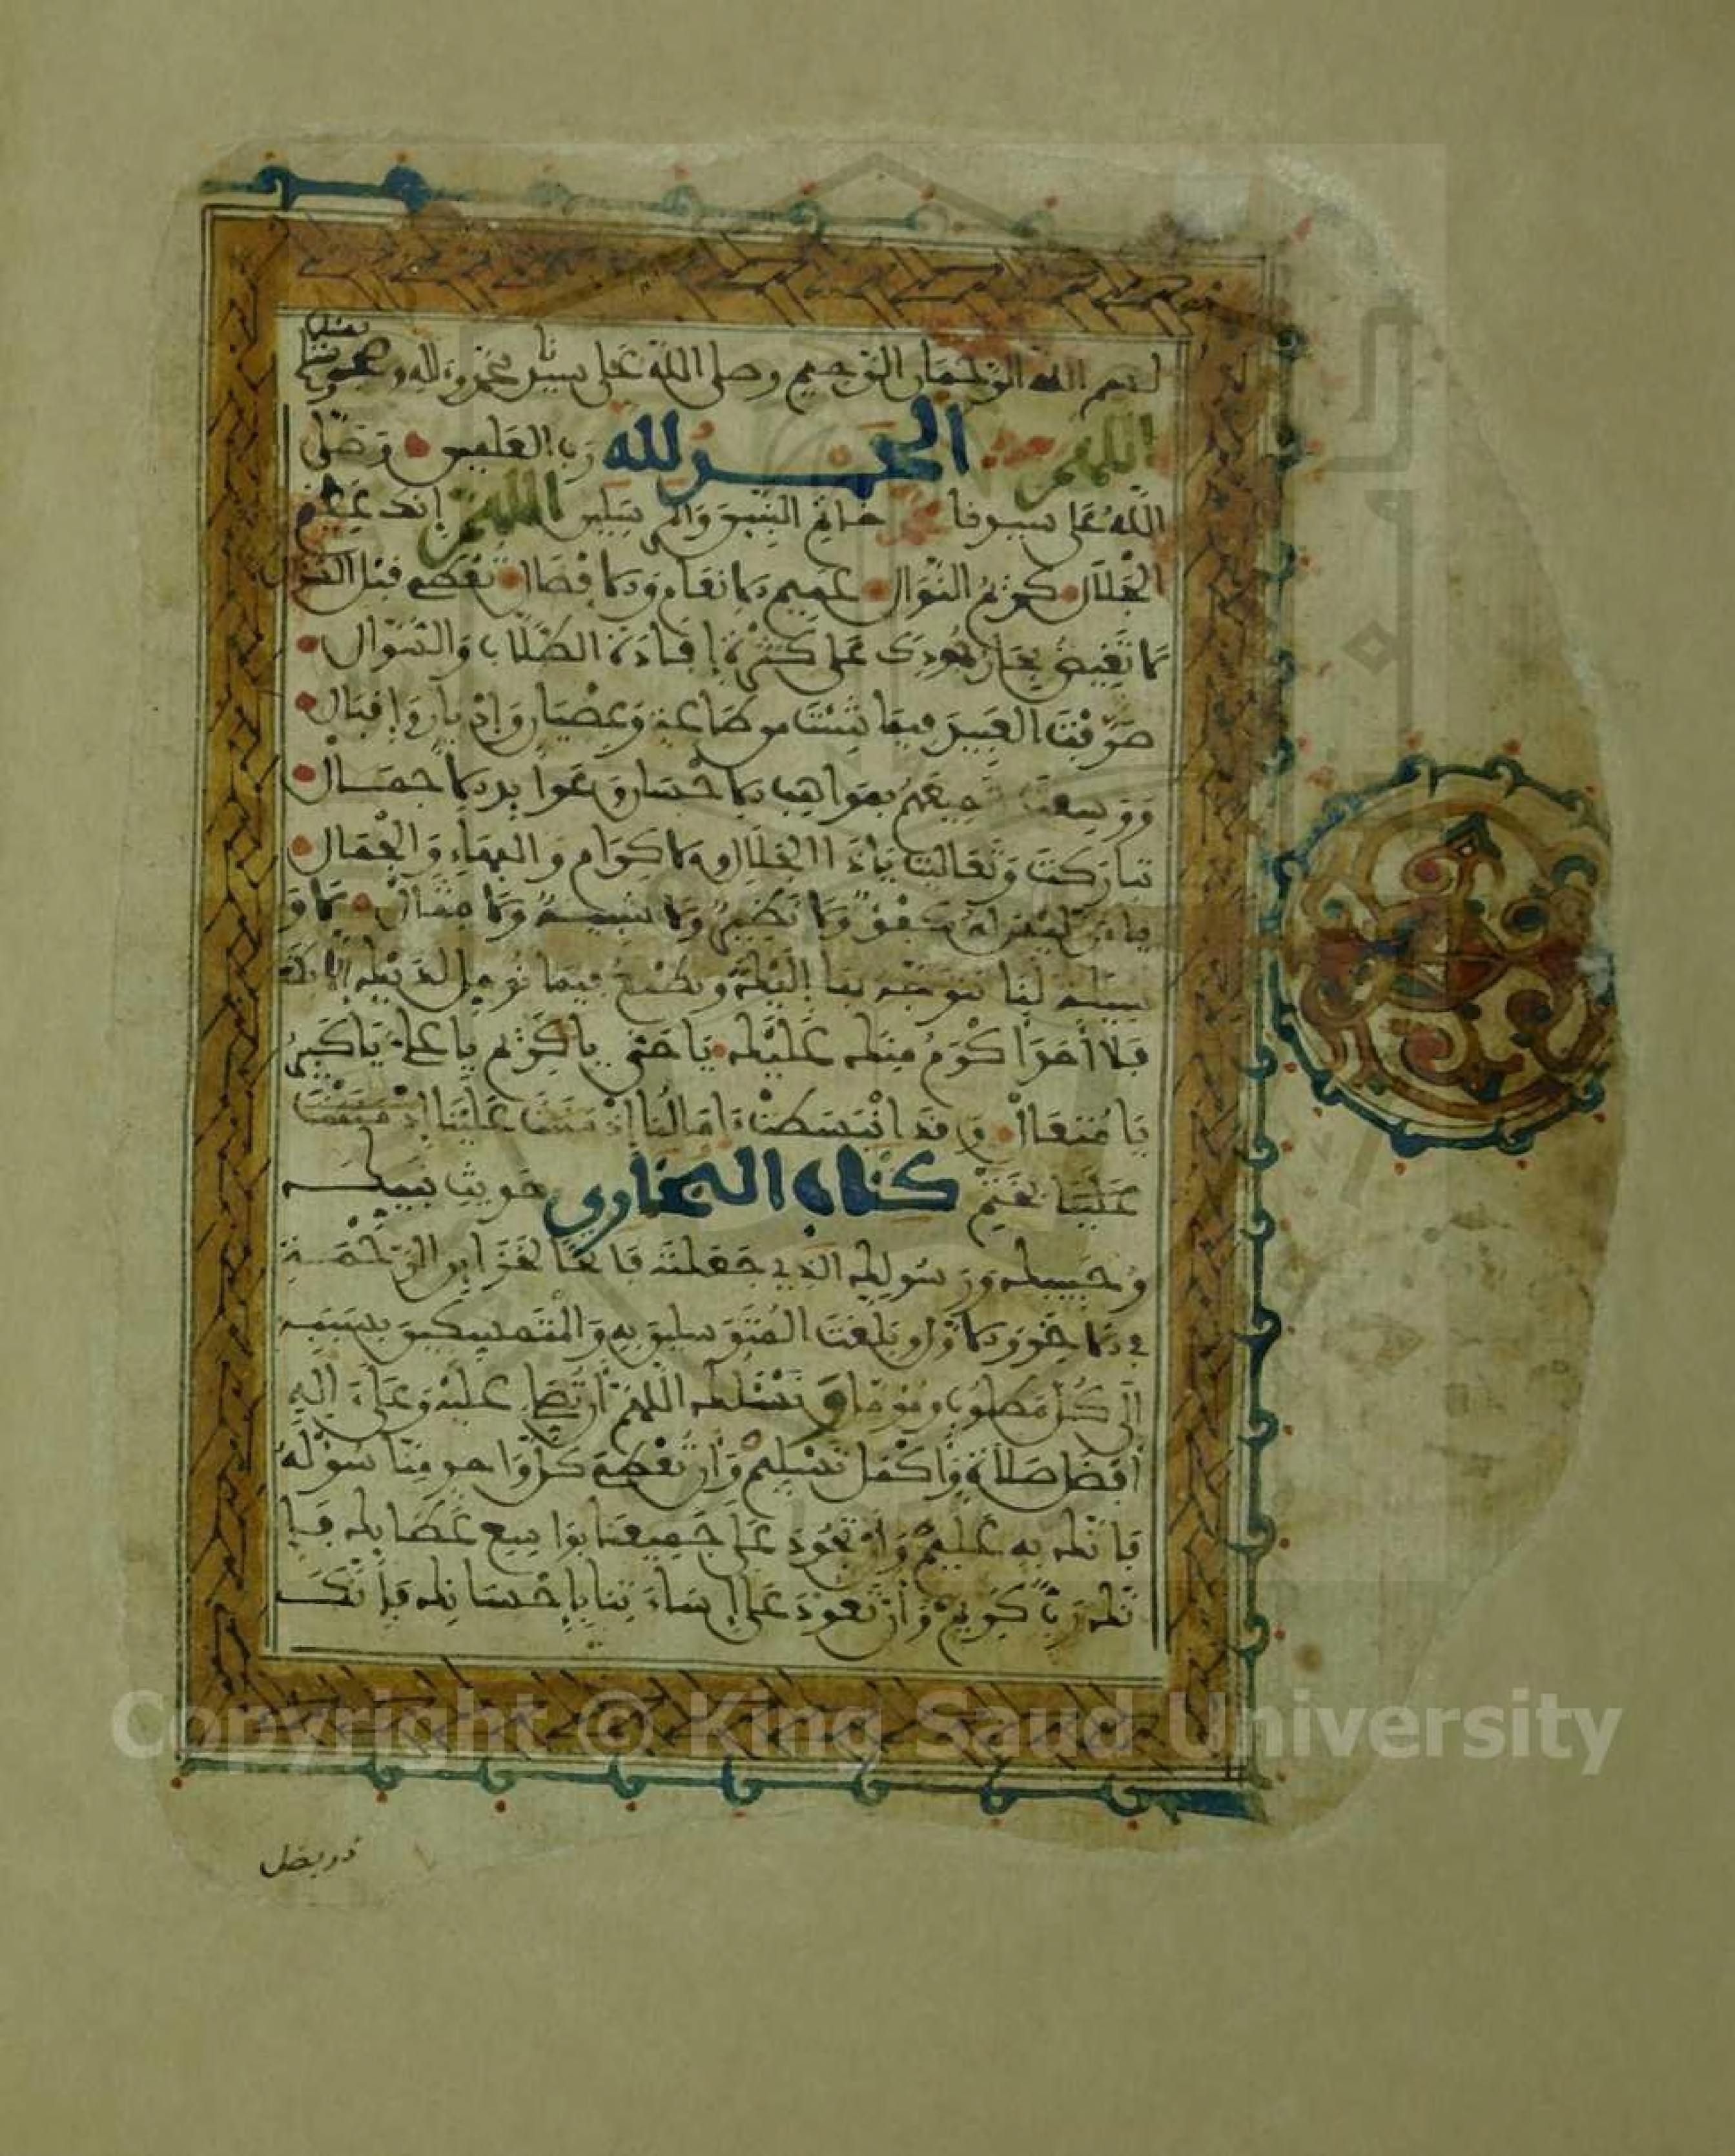 بسم الله الرحمان الرحيم وصلى الله على سيدنا محمد وءاله وصحبه
اللهم الحمد لله رب العلمين وصلى
الله على سيدنا محمد خاتم النبيين والمرسلين اللهم إنك عظيم
الجلال كريم النوال عميم الانعام والافضال تعطي قبل السؤال
تفيض بحار جودك على كثرة إفادة الطلاب والسؤال
صرفت العبيد فيما شئت من طاعة وعصيان وإدبار وإقبال
ووسعت جميعهم بمواهب الاحسان وعوايد الاجمال
تباركت وتعاليت ياذا الجلال والاكرام والبهاء والجمال
يا من ليس له ولا نظير ولا شبيه ولا مثال
وسيلة لنا نتوجه بها إليك ونطمع فيما نؤمل لديك إلا
فلا أحد أكرم منك عليك يا حي يا كريم يا علي يا كبير
يا متعال وقد انبسطت ءامالنا إذ مننت علينا إذ
علينا بختم كتاب البخاري حديث نبيك
وحبيبك ورسولك الذي جعلته فاتحا لخزاين الرحمة
وبلغت المتوسلين به والمتمسكين بسببه
الى كل مطلوب ومرغوب نسئلك اللهم أن تصلي عليه وعلى ءاله
أفضل صلاة وأكمل تسليم وأن تعطي كل واحد منا سؤله
فإنك به عليم وأن تجود على جميعنا بواسع عطايك فإ
نك رب كريم وأن تعود على إساءتنا بإحسانك فإنك
ذو بفضل
Copyright © King Saud University